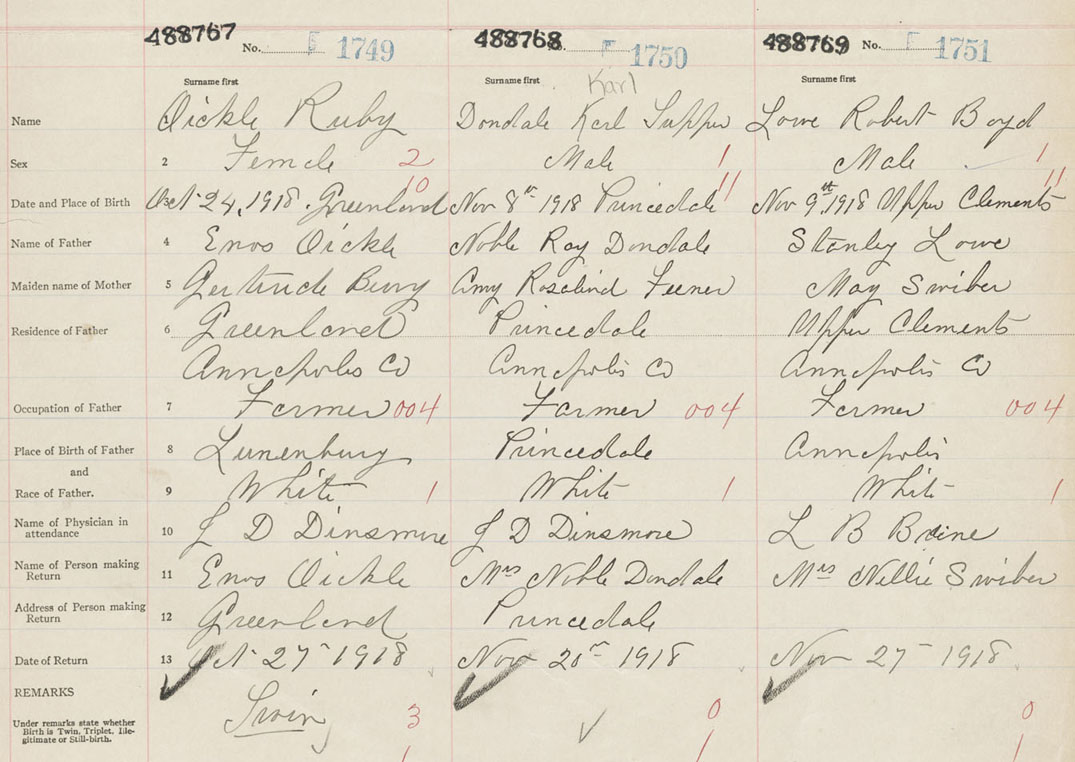 488767 No. 1749 488768 1750 488769 No. 1751
Surname first Surname first Karl Surname first
Name Oickle Ruby Dondale Karl Tupper Lowe Robert Boyd
Sex 2 Female 2 Male 1 Male 1
10 11 11
Date and Place of Birth 3 Oct 24, 1918. Greenland Nov 8th 1918 Princedale Nov 9th 1918 Upper Clements
Name of Father 4 Enos Oickle Noble Roy Dondale Stanley Lowe
Maiden name of Mother 5 Gertrude Berry Amy Rosalind Feener May Swiber
Residence of Father 6 Greenland Princedale Upper Clements
Annapolis Co Annapolis Co Annapolis Co
Occupation of Father 7 Farmer 004 Farmer 004 Farmer 004
Place of Birth of Father 8 Lunenburg Princedale Annapolis
and
Race of Father. 9 White 1 White 1 White 1
Name of Physician in
attendance 10 L D Dinsmore L D Dinsmore L B Braine
Name of Person making
Return 11 Enos Oickle Mrs Noble Dondale Mrs Nellie Swiber
Address of Person making
Return 12 Greenland Princedale
Date of Return 13 Oct 27 1918 Nov 20 1918 Nov 27 1918
REMARKS Twin 3 0 0
Under remarks state whether
Birth is Twin, Triplet, Ille-
gitimate or Still-birth.
1 1 1